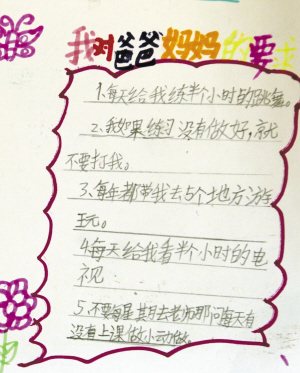 我对爸爸妈妈的要求
1、每天给我练半个小时的跳舞。
2、我如果练习没有做好,就
不要打我。
3、每年都带我去5个地方游
玩。
4、每天给我看半个小时的电
视
5、不要每星期日去老师那问每天有
没有上课做小动做。